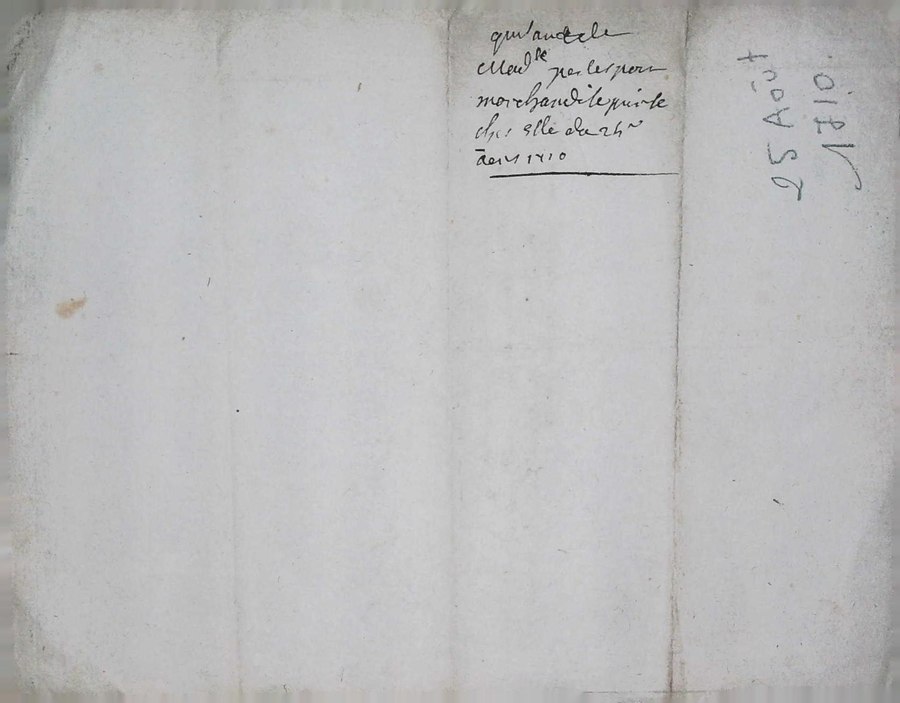 quitance de
Mad^lle pour
marchandise prise
ches elle du 25
Aout 1710
25 Août
1710.